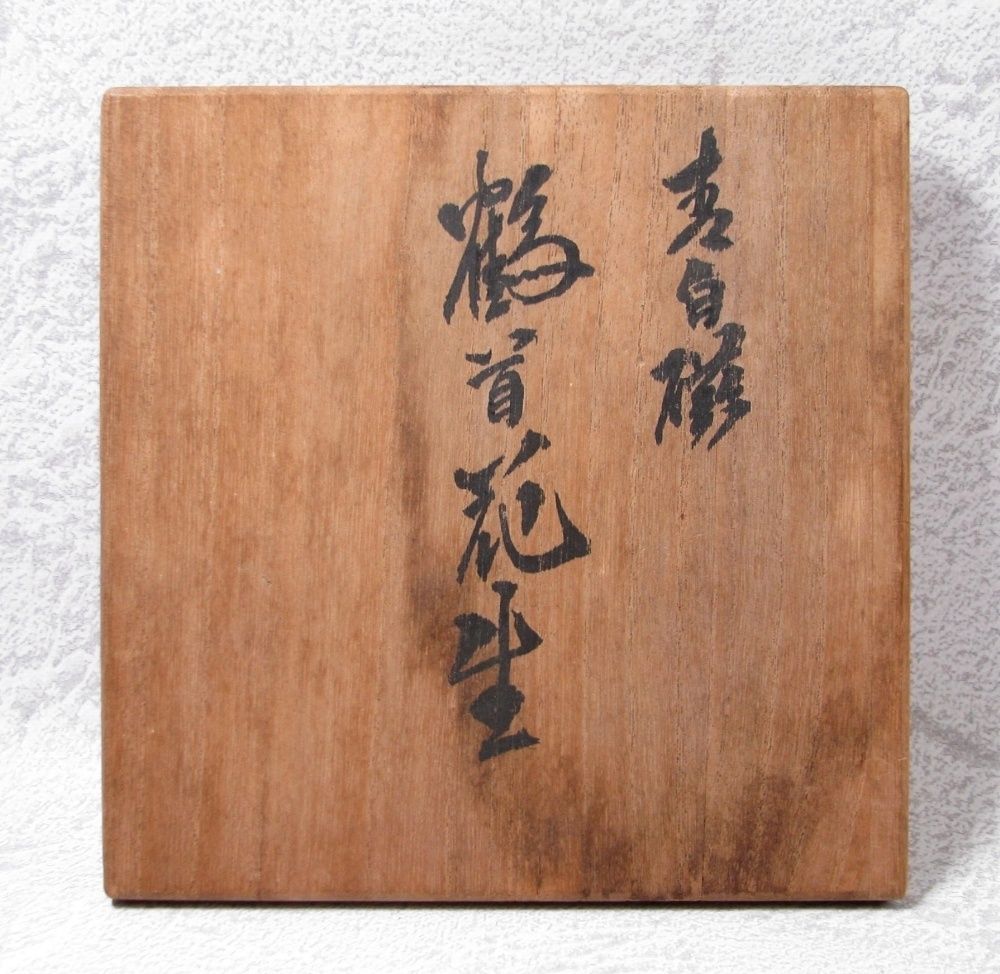 青白磁
鶴首花生